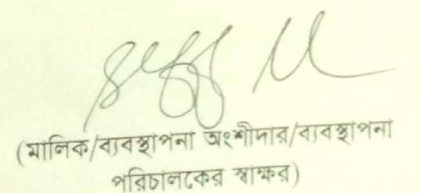 (মালিক/ব্যবস্থাপনা অংশীদার/ব্যবস্থাপনা
পরিচালকের স্বাক্ষর)